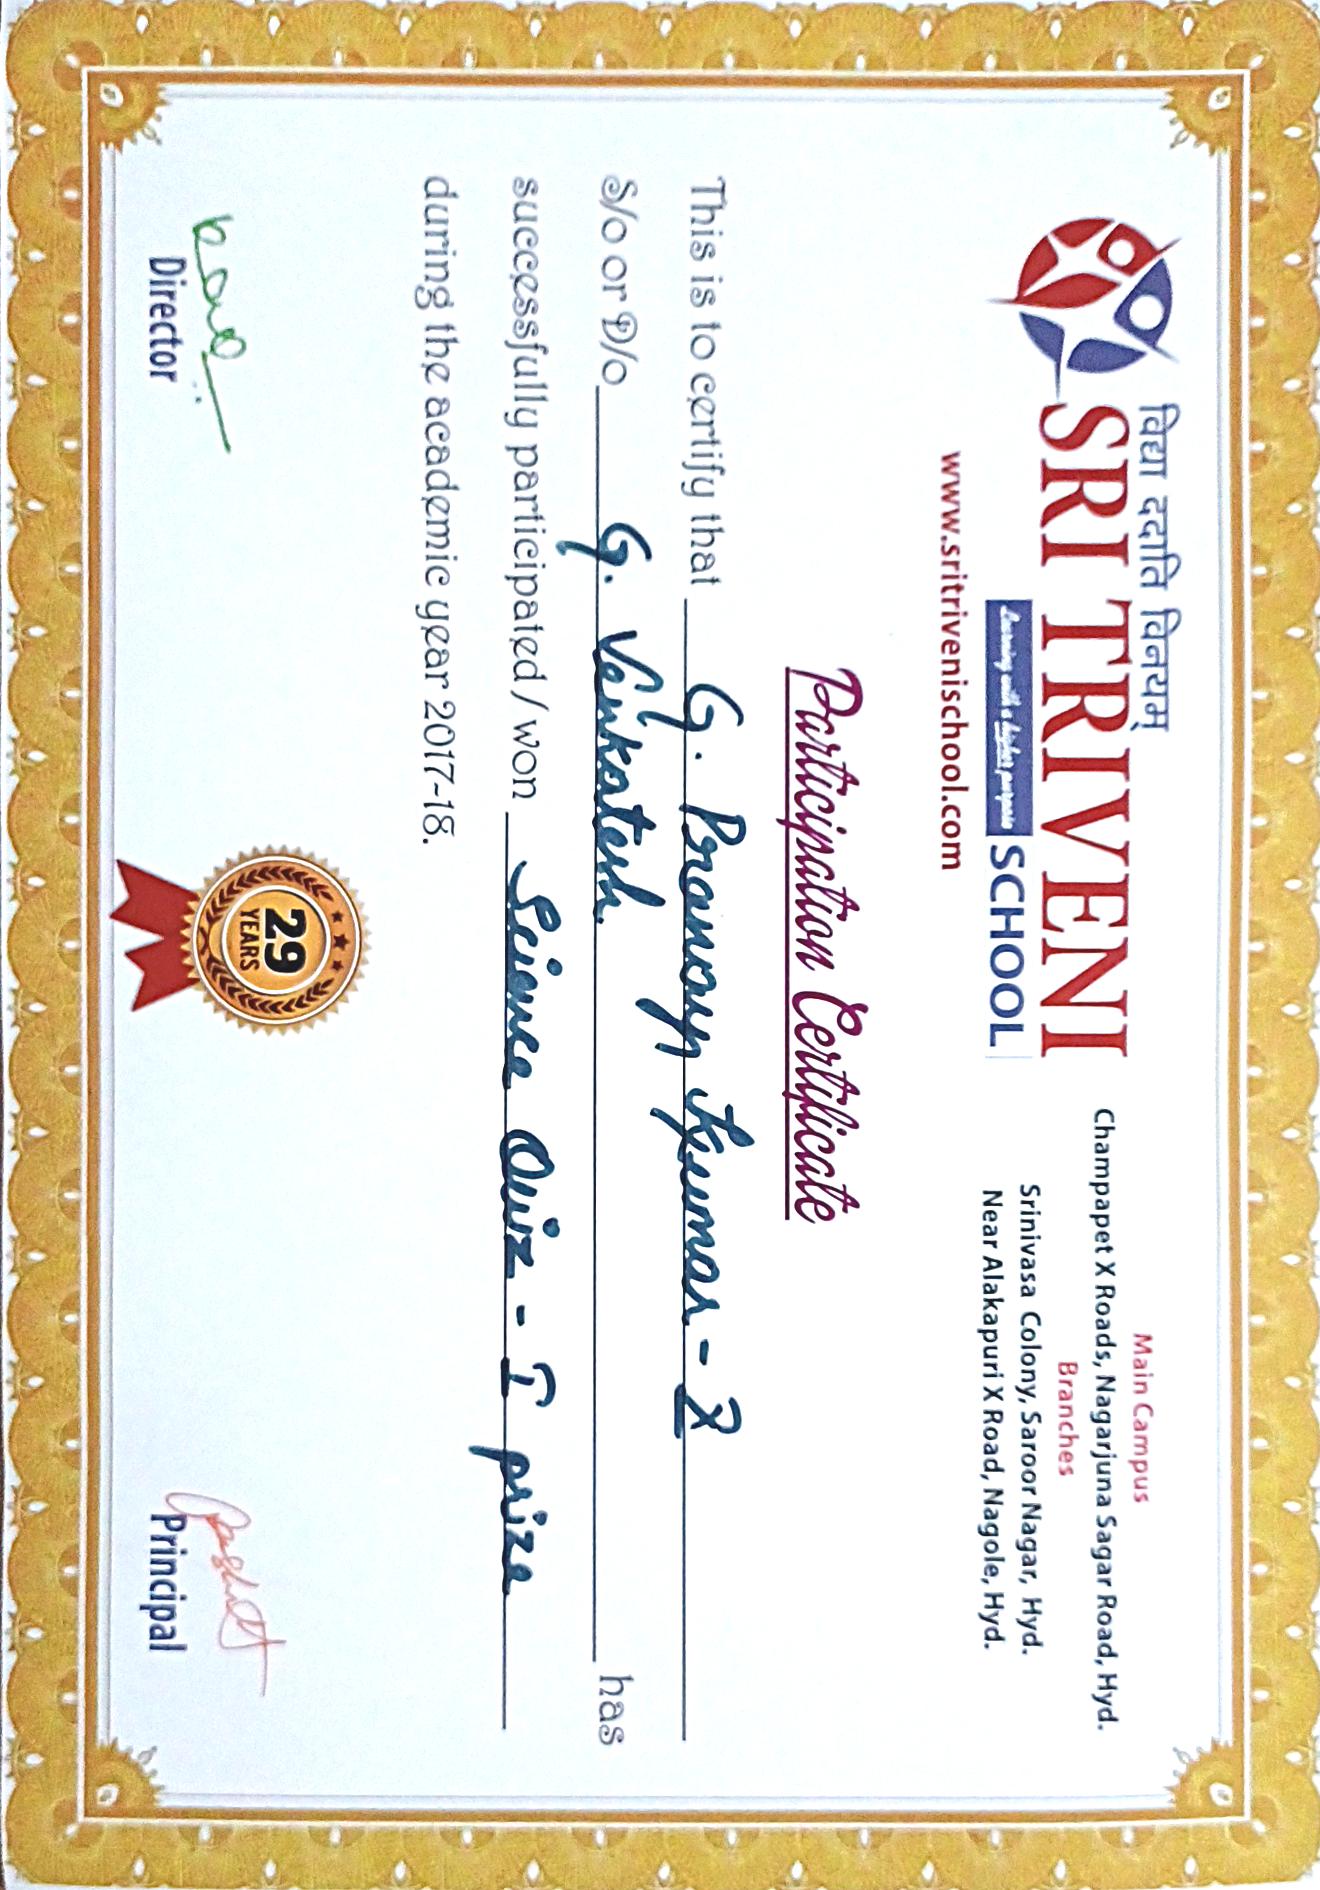 विद्या ददाति विनयम्
SRI TRIVENI
Learning with a higher purpose SCHOOL
www.sritrivenischool.com
Main Campus
Champapet X Roads, Nagarjuna Sagar Road, Hyd.
Branches
Srinivasa Colony, Saroor Nagar, Hyd.
Near Alakapuri X Road, Nagole, Hyd.
Participation Certificate
This is to certify that G. Pranay Kumar - X
S/o or D/o G. Venkatesh. has
successfully participated / won Science Quiz - I prize
during the academic year 2017-18.
29
YEARS
Director
Principal